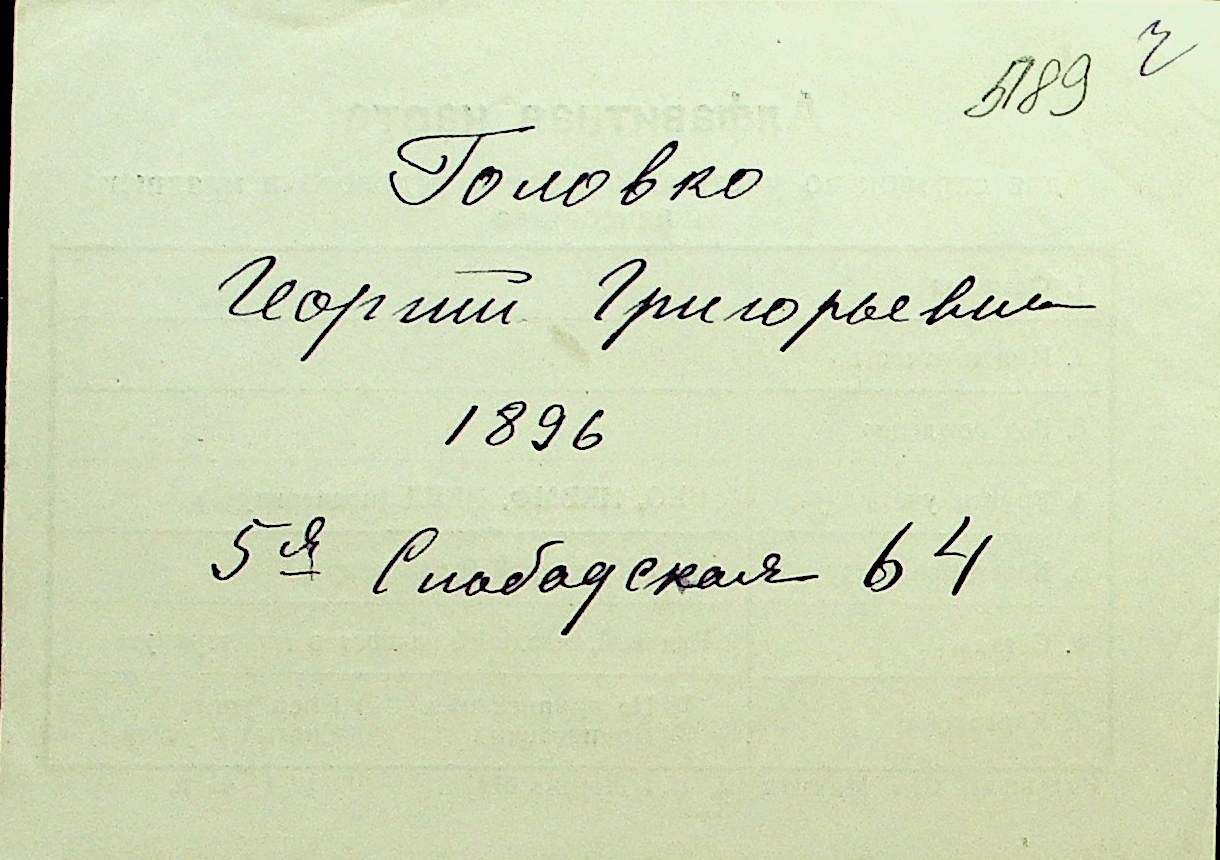 5189 г
Головко
Георгий Григорьевич
1896
5я Слободская 64